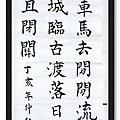 車馬去閒閒流
城臨古渡落日
且閉關
丁亥年仲